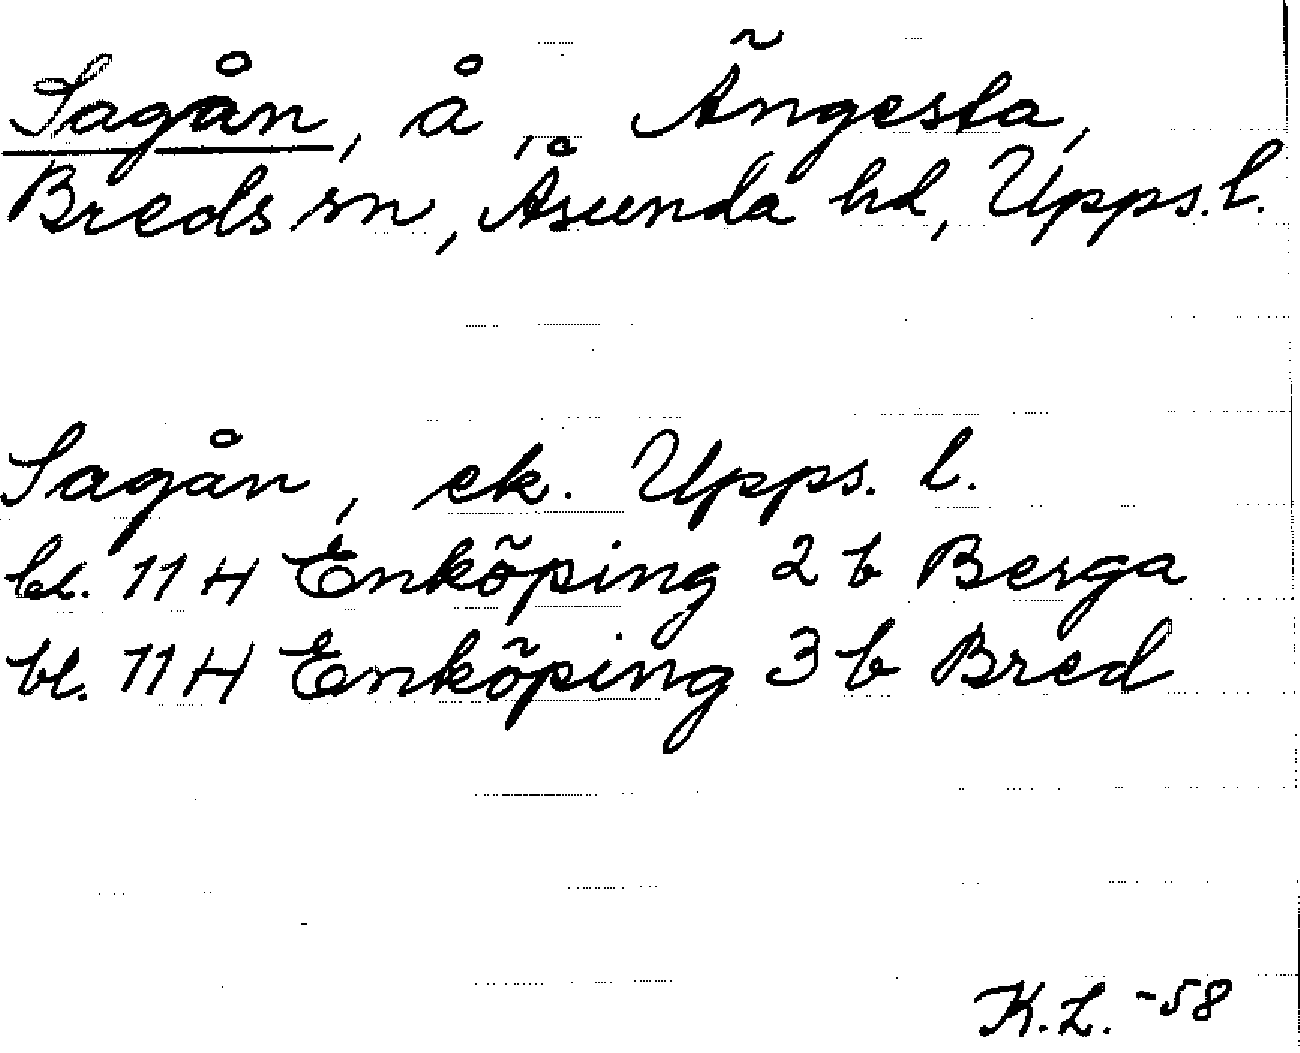 Sagån, å, Ängesta,
Breds sn, Åsunda hd, Upps. l.
Sagån, ek. Upps. l.
bl. 11 H Enköping 2 b Berga
bl. 11 H Enköping 3 b Bred
K.L. -58